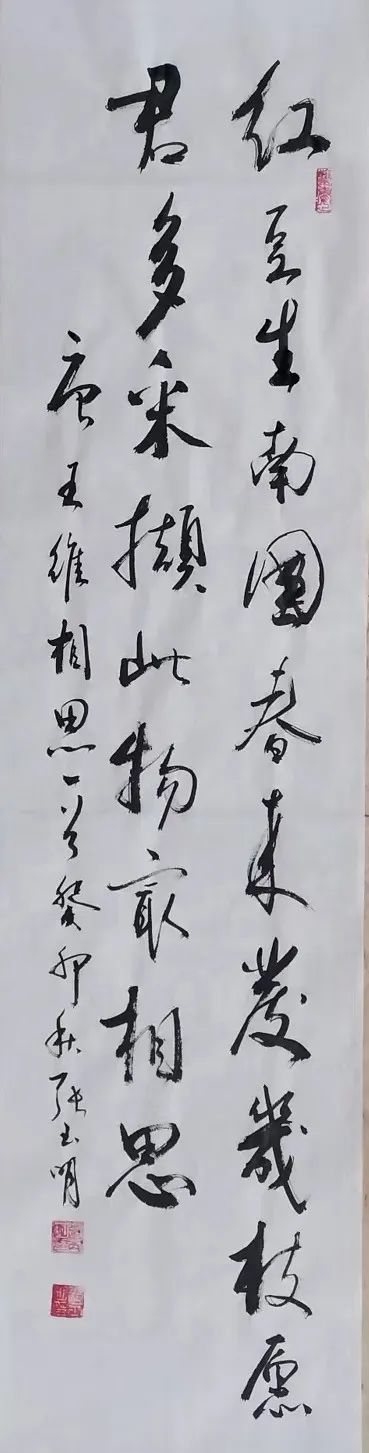 红豆生南國春来發幾枝愿
君多采擷此物最相思
唐王維相思一首癸卯秋張玉明